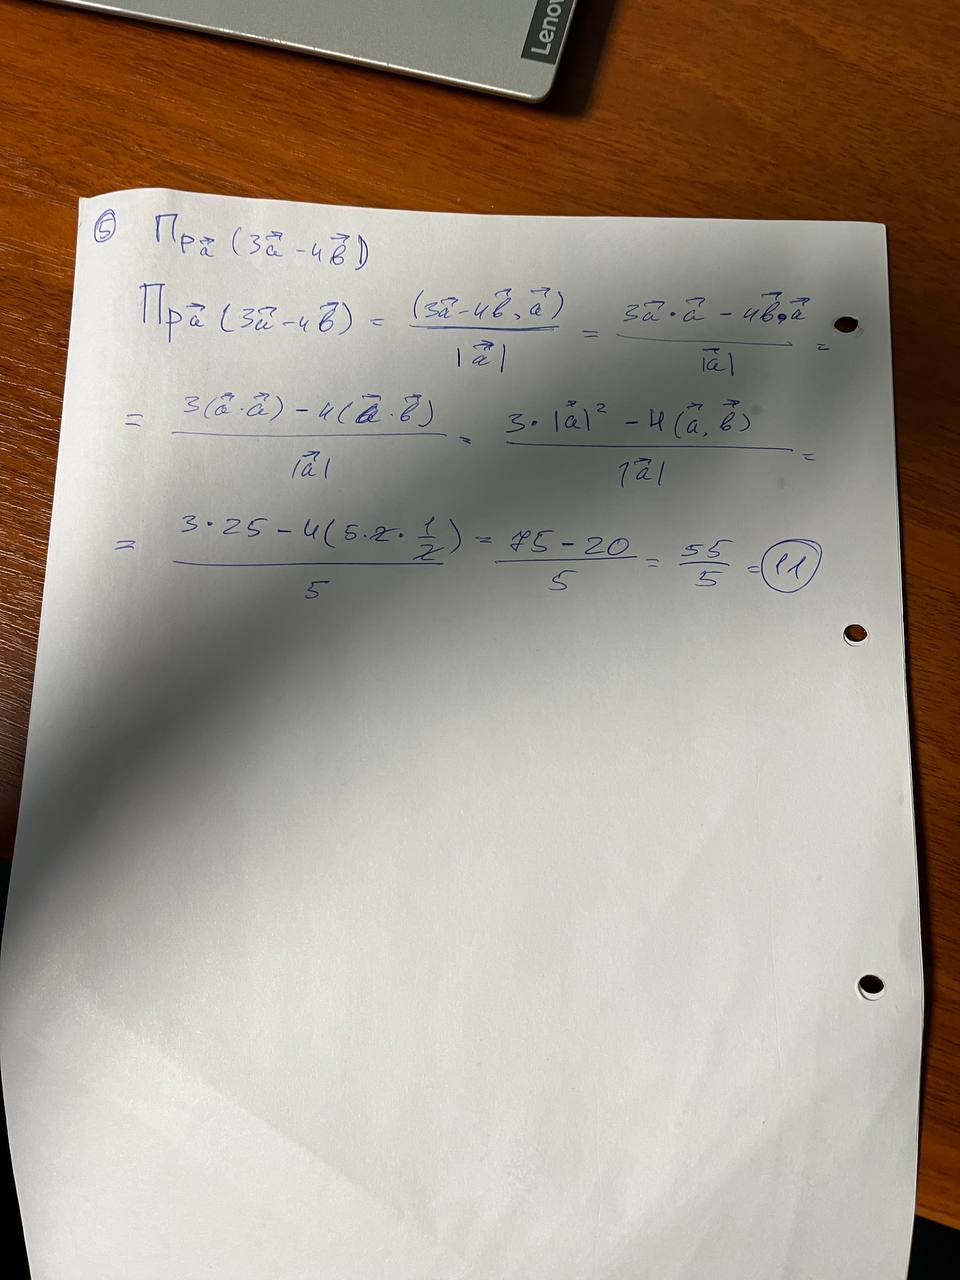 Lenov
⑤ Пр_a⃗ (3a⃗ - 4b⃗)
Пр_a⃗ (3a⃗ - 4b⃗) = (3a⃗ - 4b⃗, a⃗) / |a⃗| = 3a⃗ · a⃗ - 4b⃗ · a⃗ / |a⃗| =
= 3(a⃗ · a⃗) - 4(a⃗ · b⃗) / |a⃗| = 3 · |a⃗|² - 4(a⃗, b⃗) / |a⃗| =
= 3 · 25 - 4(5 · 2 · 1/2) / 5 = 75 - 20 / 5 = 55/5 = 11